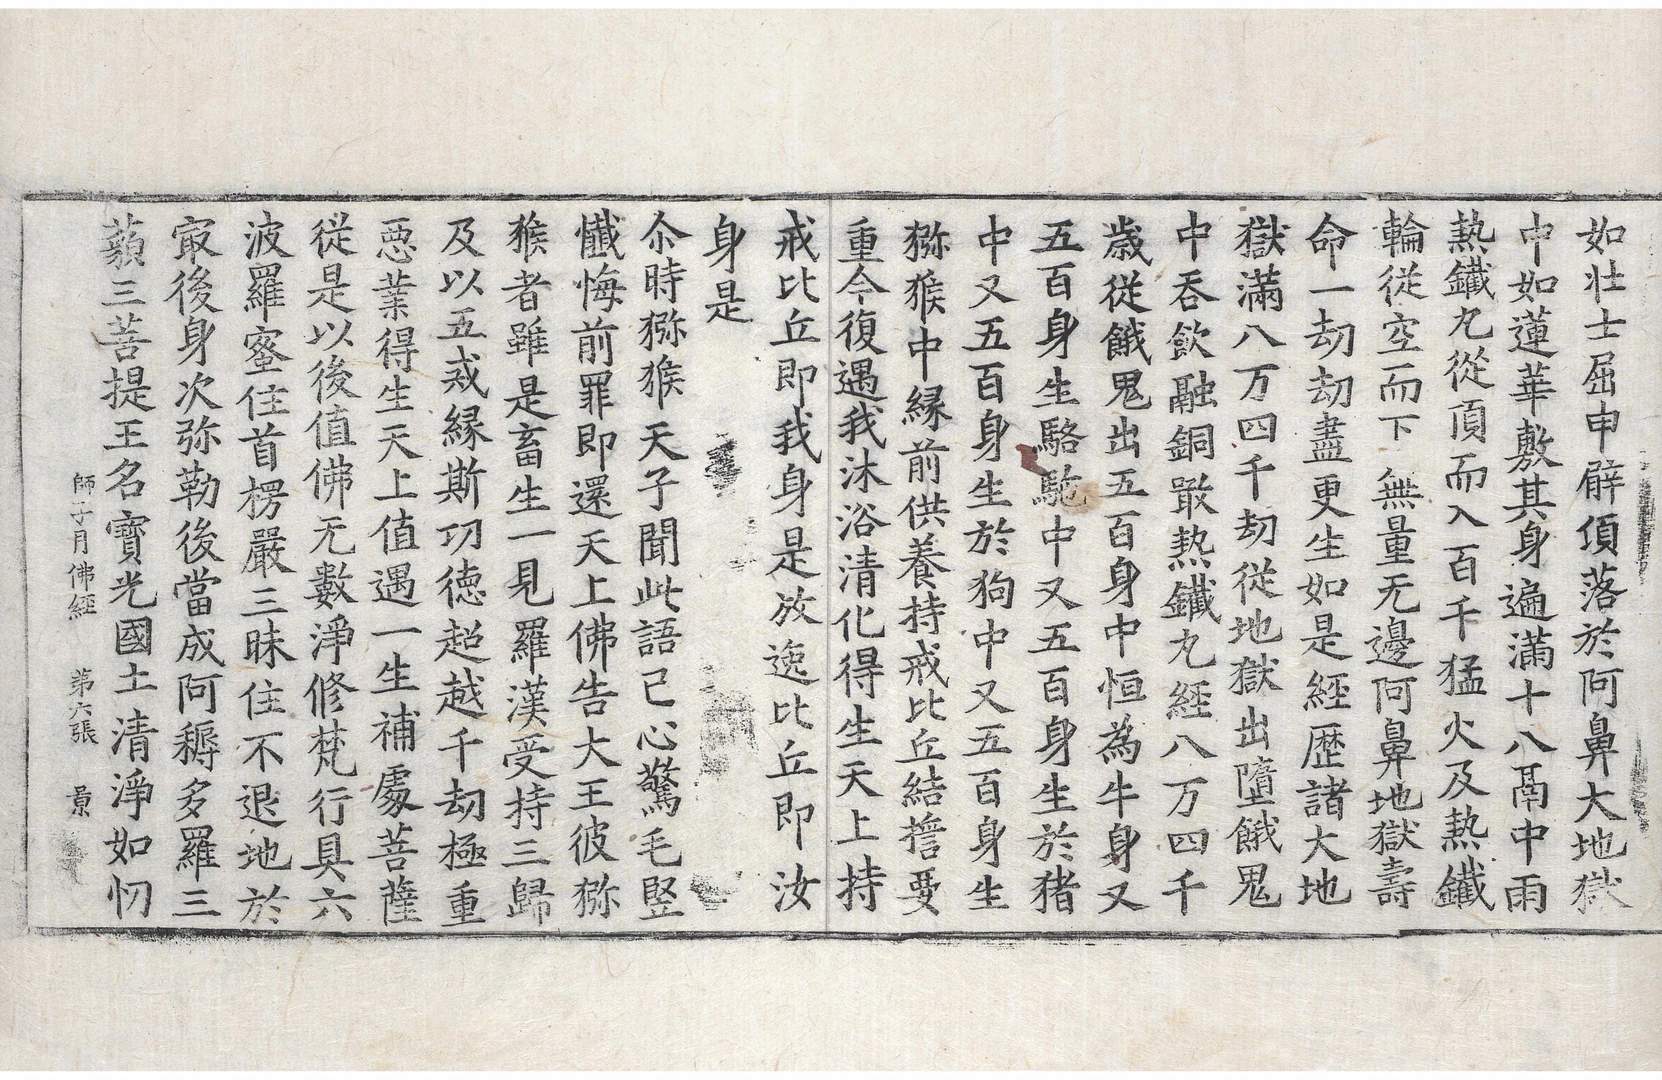 如壮士屈申臂頃落於阿鼻大地獄
中如蓮華敷其身遍滿十八鬲中雨
熱鐵丸從頂而入百千猛火及熱鐵
輪從空而下無量无邊阿鼻地獄壽
命一劫劫盡更生如是經歷諸大地
獄滿八万四千劫從地獄出墮餓鬼
中吞飲融銅噉熱鐵丸經八万四千
歲從餓鬼出五百身中恒為牛身又
五百身生駱馳中又五百身生於猪
中又五百身生於狗中又五百身生
猕猴中縁前供養持戒比丘結誓要
重今復遇我沐浴清化得生天上持
戒比丘即我身是放逸比丘即汝
身是
尒時猕猴天子聞此語已心驚毛竪
懺悔前罪即還天上佛告大王彼猕
猴者雖是畜生一見羅漢受持三歸
及以五戒縁斯功德超越千劫極重
惡業得生天上值遇一生補處菩薩
從是以後值佛无數淨修梵行具六
波羅蜜住首楞嚴三昧住不退地於
㝡後身次弥勒後當成阿耨多羅三
藐三菩提王名寶光國土清淨如忉
師子月佛經 第六張 景